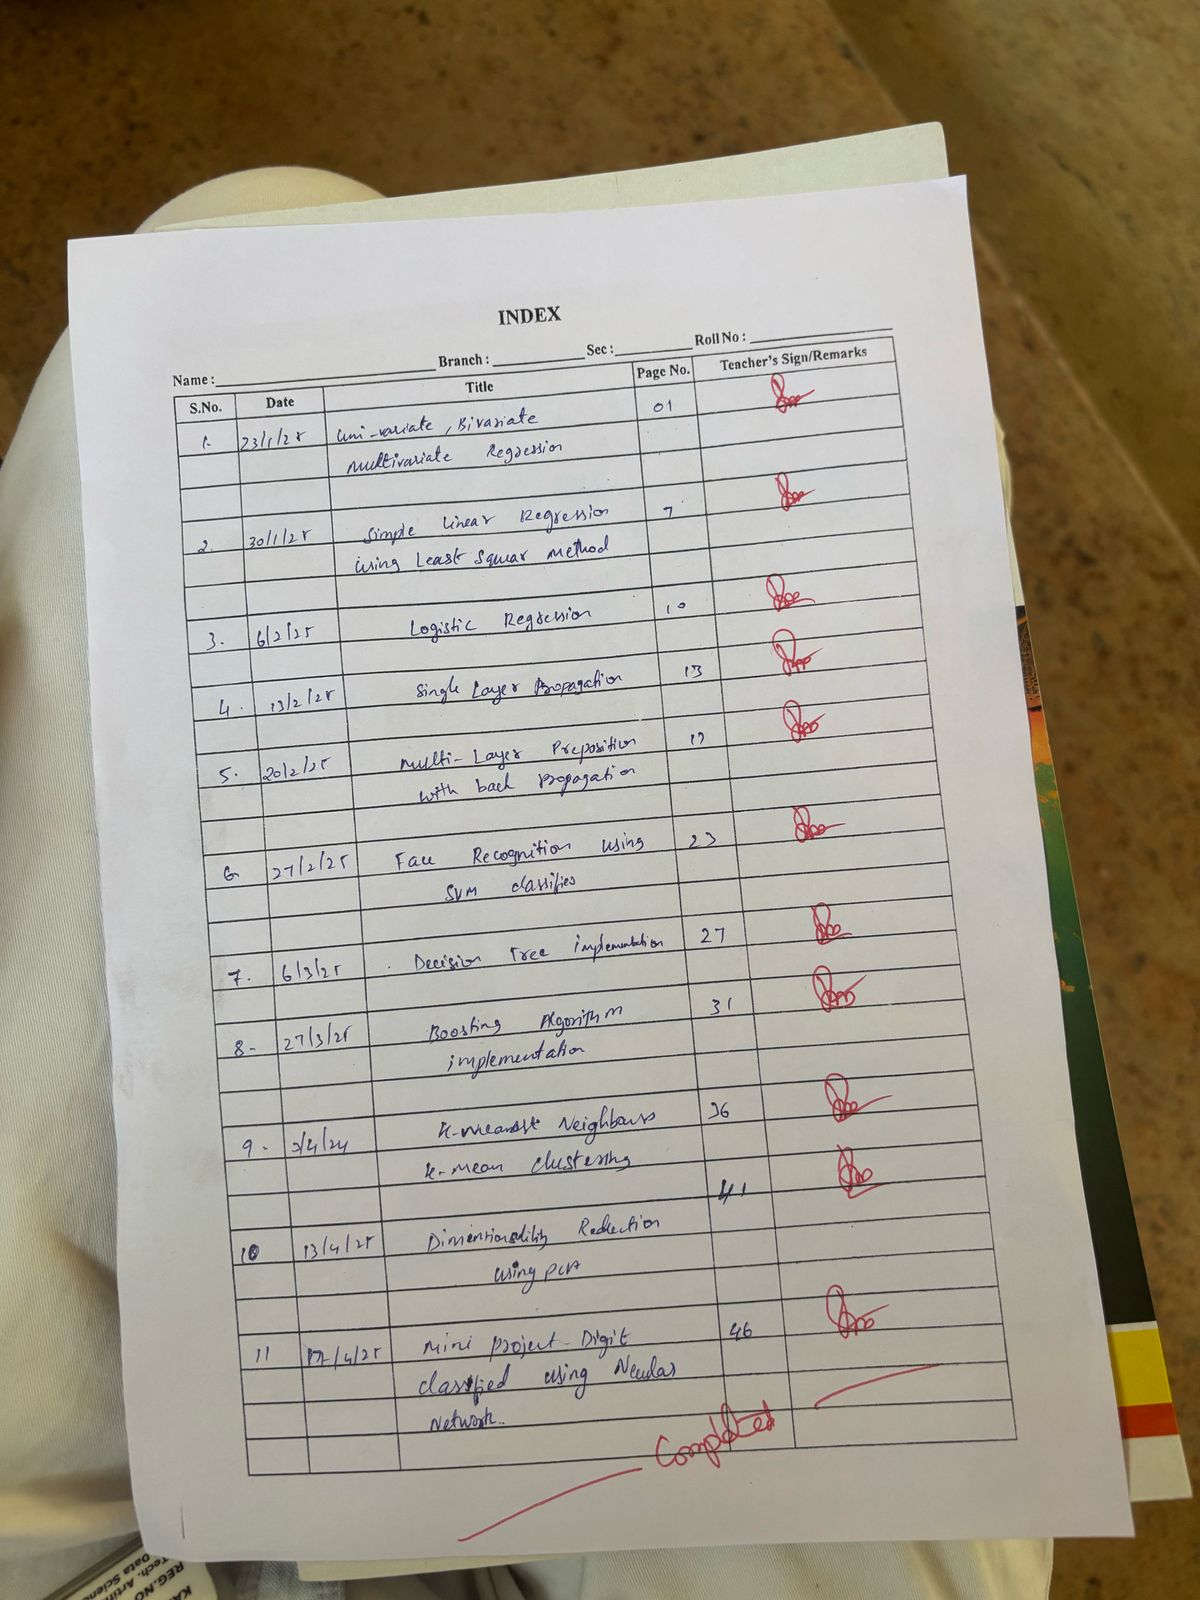 INDEX
Name: Branch: Sec: Roll No:
S.No. Date Title Page No. Teacher's Sign/Remarks
1. 23/1/25 Uni-variate, Bivariate 01
Multivariate Regression
2. 30/1/25 Simple Linear Regression 7
using Least Squar method
3. 6/2/25 Logistic Regression 10
4. 13/2/25 Single Layer Propagation 13
5. 20/2/25 Multi-Layer Preposition
with back propagation
6. 27/2/25 Face Recognition using 23
SVM classifies
7. 6/3/25 Decision Tree implementation 27
8- 27/3/25 Boosting Algorithm 31
implementation
9. 3/4/24 Neighbours 36
k-mean clustering
41
10 13/4/25 Dimentionsality Reduction
using PCA
11 17/4/25 Mini project-Digit 46
classified using Neular
Network..
Completed
REG.NO
Tech. Artifi
Data Scienc